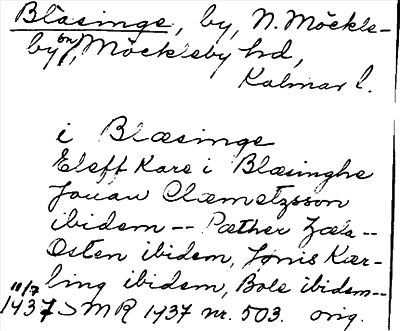 Bläsinge, by, N. Möckle-
by sn, Möckleby hd,
Kalmar l.
i Blæsinge
Eleff Kare i Blæsinghe
Jouan Clæmetzsson
ibidem -- Pæther Zæla --
Osten ibidem, Jønis Kær-
ling ibidem, Bole ibidem --
11/7
1437 > MR 1437 nr. 503. orig.